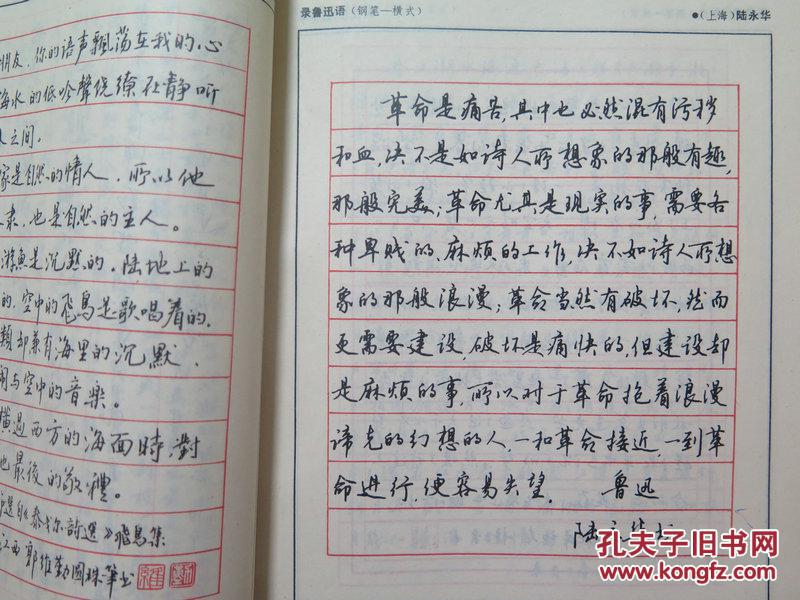 朋友，你的语声飘荡在我的心
海水的低吟聲绕缭在静听
之间。
家是自然的情人，所以他
隶，也是自然的主人。
游魚是沉默的，陆地上的
的，空中的飛鳥是歌唱着的，
類却兼有海里的沉默，
闹与空中的音樂。
橫過西方的海面時，對
他最後的敬禮。
选自《泰戈尔詩選》飛鳥集
江西 郭維勤圆珠笔书
录鲁迅语（钢笔—横式）
●（上海）陆永华
革命是痛苦，其中也必然混有污秽
和血，决不是如诗人所想象的那般有趣，
那般完美；革命尤其是现实的事，需要各
种卑贱的，麻烦的工作，决不如诗人所想
象的那般浪漫；革命当然有破坏，然而
更需要建设，破坏是痛快的，但建设却
是麻烦的事，所以对于革命抱着浪漫
谛克的幻想的人，一和革命接近，一到革
命进行，便容易失望。 鲁迅
陆永华书
孔夫子旧书网
www.kongfz.com